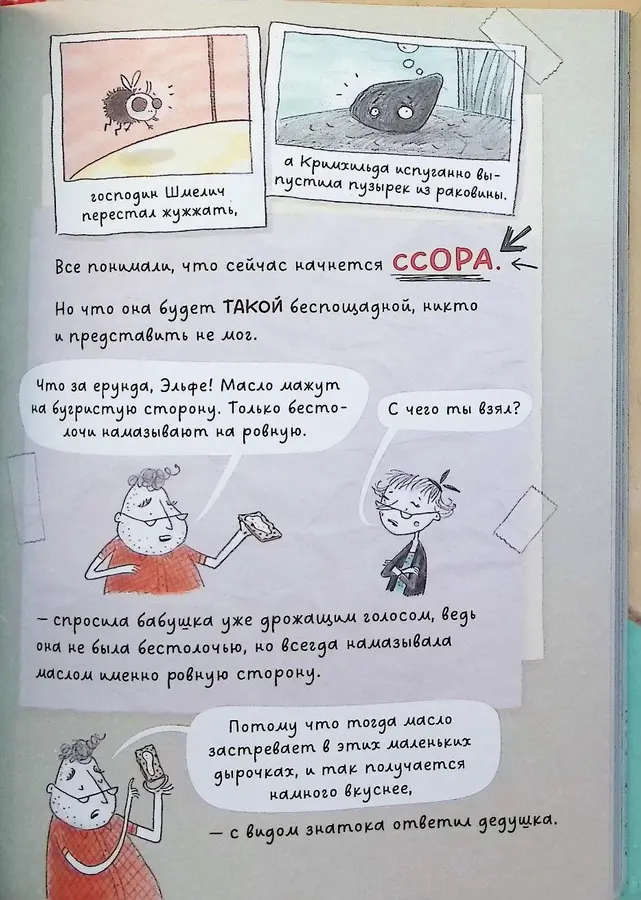 господин Шмелич
перестал жужжать,
а Кримхильда испуганно вы-
пустила пузырек из раковины.
Все понимали, что сейчас начнется ССОРА.
Но что она будет ТАКОЙ беспощадной, никто
и представить не мог.
Что за ерунда, Эльфе! Масло мажут
на бугристую сторону. Только бесто-
лочи намазывают на ровную.
С чего ты взял?
— спросила бабушка уже дрожащим голосом, ведь
она не была бестолочью, но всегда намазывала
маслом именно ровную сторону.
Потому что тогда масло
застревает в этих маленьких
дырочках, и так получается
намного вкуснее,
— с видом знатока ответил дедушка.